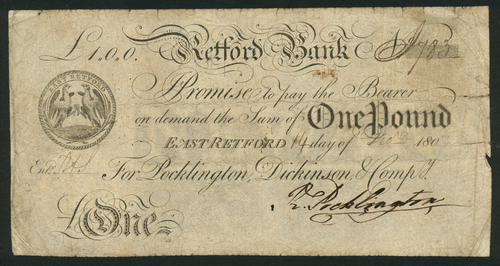 £1.0.0. Retford Bank
EAST RETFORD
I Promise to pay the Bearer
on demand the Sum of One Pound
EAST RETFORD 14 day of 180
Entd.
For Pocklington, Dickinson & Compy.
£One
R. Pocklington